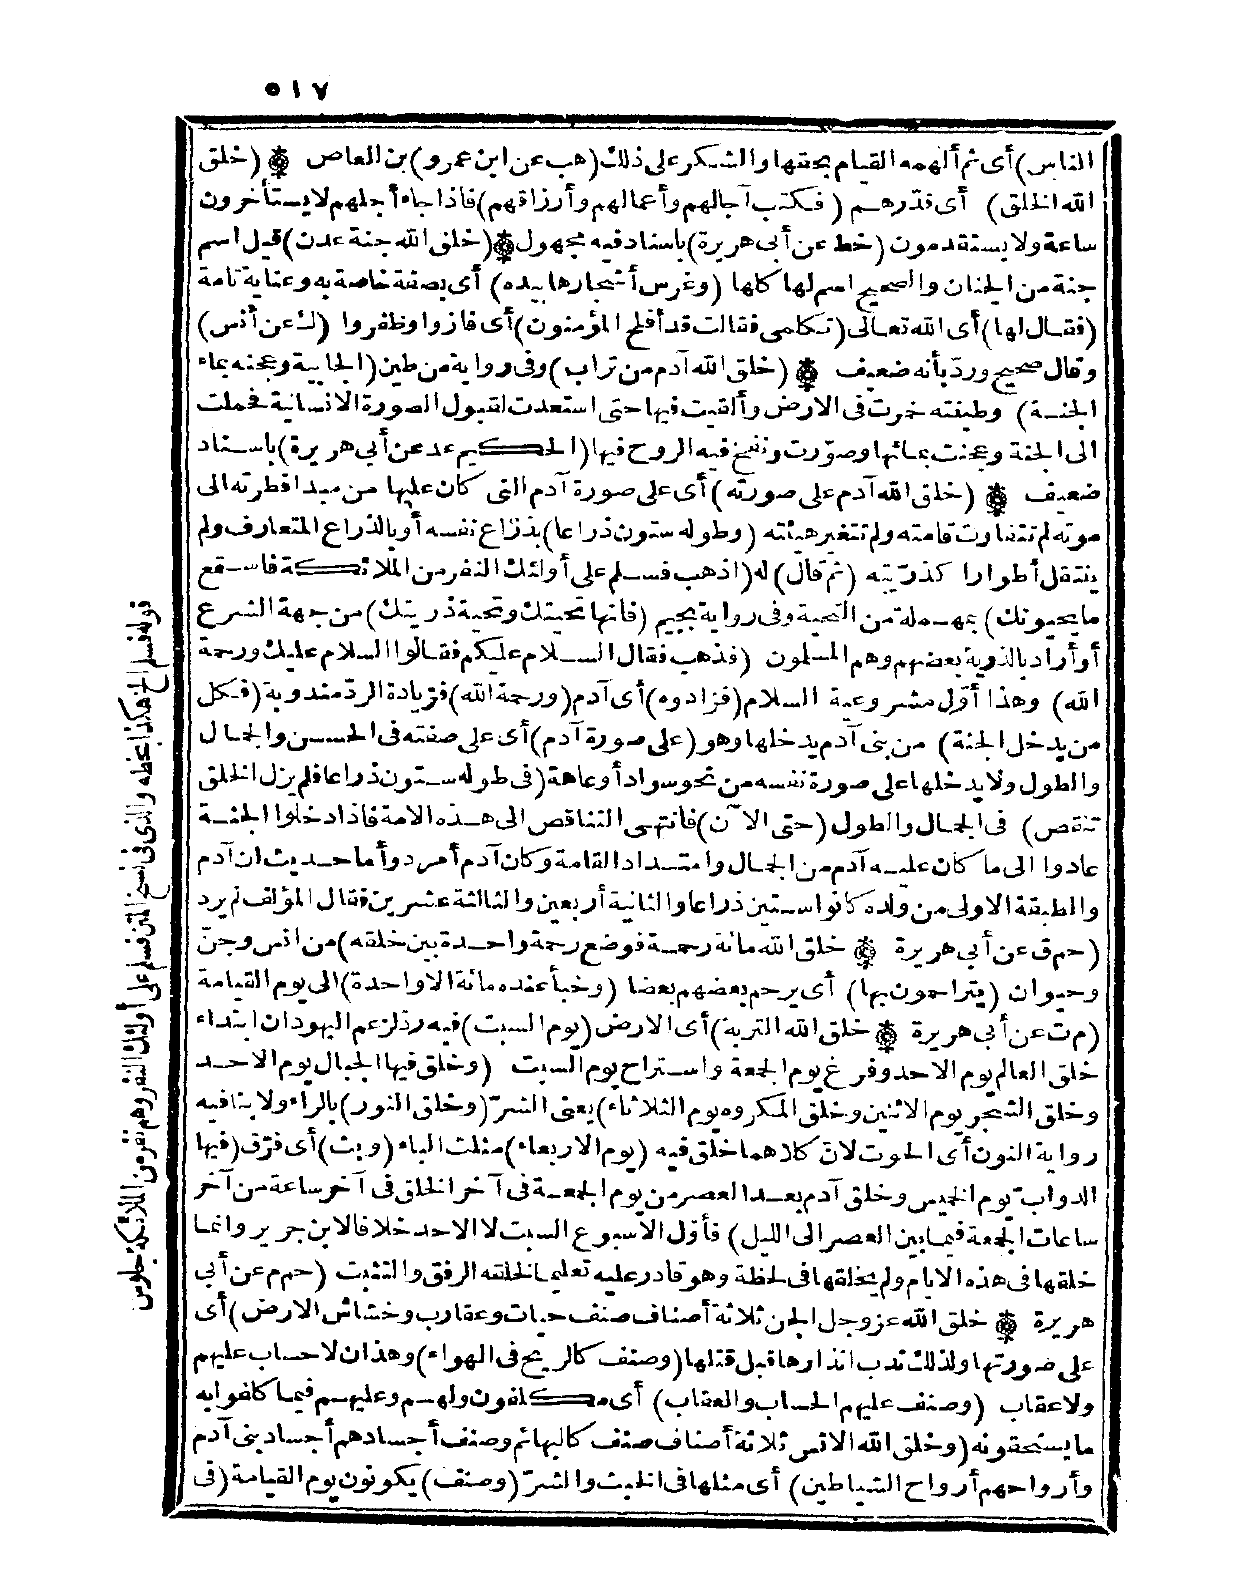 ٥١٧
الناس) أى ثم ألهمه القيام بحقها والشكر على ذلك (هب عن ابن عمرو) بن العاص ۞ (خلق
الله الخلق) أى قدرهم (فكتب آجالهم وأعمالهم وأرزاقهم) فاذا جاء أجلهم لا يستأخرون
ساعة ولا يستقدمون (خط عن أبى هريرة) باسناد فيه مجهول ۞ (خلق الله جنة عدن) قيل اسم
جنة من الجنان والصحيح اسم لها كلها (وغرس أشجارها بيده) أى بصفة خاصة به وعناية تامة
(فقال لها) أى الله تعالى (تكلمى فقالت قد أفلح المؤمنون) أى فازوا وظفروا (ك عن أنس)
وقال صحيح وردّ بأنه ضعيف ۞ (خلق الله آدم من تراب) وفى رواية من طين (الجابية وعجنه بماء
الجنة) وطينته خمرت فى الارض وألقيت فيها حتى استعدت لقبول الصورة الانسانية فحملت
الى الجنة وعجنت بمائها وصوّرت ونفخ فيه الروح فيها (الحكيم عد عن أبى هريرة) باسناد
ضعيف ۞ (خلق الله آدم على صورته) أى على صورة آدم التى كان عليها من مبدا فطرته الى
موته لم تتفاوت قامته ولم تتغير هيئته (وطوله ستون ذراعا) بذراع نفسه أو بالذراع المتعارف ولم
ينتقل أطوارا كذريّته (ثم قال) له (اذهب فسلم على أولئك النفر من الملائكة فاسمع
ما يحيونك) بمهملة من التحية وفى رواية بجيم (فانها تحيتك وتحية ذريتك) من جهة الشرع
أو أراد بالذرية بعضهم وهم المسلمون (فذهب فقال السلام عليكم فقالوا السلام عليك ورحمة
الله) وهذا أوّل مشروعية السلام (فزادوه) أى آدم (ورحمة الله) فزيادة الردّ مندوبة (فكل
من يدخل الجنة) من بنى آدم يدخلها وهو (على صورة آدم) أى على صفته فى الحسن والجمال
والطول ولا يدخلها على صورة نفسه من نحو سواد أو عاهة (فى طوله ستون ذراعا فلم يزل الخلق
تنقص) فى الجمال والطول (حتى الآن) فانتهى التناقص الى هذه الامة فاذا دخلوا الجنة
عادوا الى ما كان عليه آدم من الجمال وامتداد القامة وكان آدم أمرد وأما حديث ان آدم
والطبقة الاولى من ولده كانوا ستين ذراعا والثانية أربعين والثالثة عشرين فقال المؤلف لم يرد
(حم ق عن أبى هريرة ۞ خلق الله مائة رحمة فوضع رحمة واحدة بين خلقه) من انس وجنّ
وحيوان (يتراحمون بها) أى يرحم بعضهم بعضا (وخبأ عنده مائة الا واحدة) الى يوم القيامة
(م ت عن أبى هريرة ۞ خلق الله التربة) أى الارض (يوم السبت) فيه رد لزعم اليهود ان ابتداء
خلق العالم يوم الاحد وفرغ يوم الجمعة واستراح يوم السبت (وخلق فيها الجبال يوم الاحد
وخلق الشجر يوم الاثنين وخلق المكروه يوم الثلاثاء) يعنى الشرّ (وخلق النور) بالراء ولا ينافيه
رواية النون أى الحوت لان كلاهما خلق فيه (يوم الاربعاء) مثلث الباء (وبث) أى فرّق (فيها
الدوابّ يوم الخميس وخلق آدم بعد العصر من يوم الجمعة فى آخر الخلق فى آخر ساعة من آخر
ساعات الجمعة فيما بين العصر الى الليل) فأوّل الاسبوع السبت لا الاحد خلافا لابن جرير وانما
خلقها فى هذه الايام ولم يخلقها فى لحظة وهو قادر عليه تعليما لخلقه الرفق والتثبت (حم م عن أبى
هريرة ۞ خلق الله عز وجل الجن ثلاثة أصناف صنف حيات وعقارب وخشاش الارض) أى
على صورتها ولذلك ندب انذارها قبل قتلها (وصنف كالريح فى الهواء) وهذان لا حساب عليهم
ولا عقاب (وصنف عليهم الحساب والعقاب) أى مكلفون ولهم وعليهم فيما كلفوا به
ما يستحقونه (وخلق الله الانس ثلاثة أصناف صنف كالبهائم وصنف أجسادهم أجساد بنى آدم
وأرواحهم أرواح الشياطين) أى مثلها فى الخبث والشرّ (وصنف) يكونون يوم القيامة (فى
قوله فسلم الخ هكذا بخطه والذى فى نسخ المتن فسلم على أولئك النفر وهم نفر من الملائكة جلوس